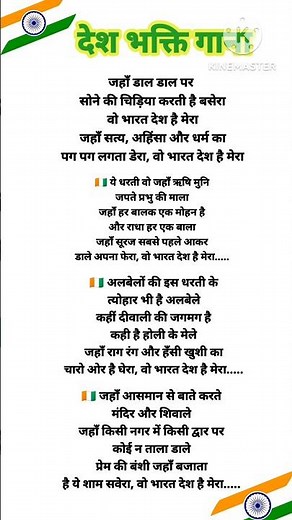 देश भक्ति गाना
KINEMASTER
जहाँ डाल डाल पर
सोने की चिड़िया करती है बसेरा
वो भारत देश है मेरा
जहाँ सत्य, अहिंसा और धर्म का
पग पग लगता डेरा, वो भारत देश है मेरा
ये धरती वो जहाँ ऋषि मुनि
जपते प्रभु की माला
जहाँ हर बालक एक मोहन है
और राधा हर एक बाला
जहाँ सूरज सबसे पहले आकर
डाले अपना फेरा, वो भारत देश है मेरा.....
अलबेलों की इस धरती के
त्योहार भी है अलबेले
कहीं दीवाली की जगमग है
कही है होली के मेले
जहाँ राग रंग और हँसी खुशी का
चारो ओर है घेरा, वो भारत देश है मेरा.....
जहाँ आसमान से बाते करते
मंदिर और शिवाले
जहाँ किसी नगर में किसी द्वार पर
कोई न ताला डाले
प्रेम की बंशी जहाँ बजाता
है ये शाम सवेरा, वो भारत देश है मेरा.....